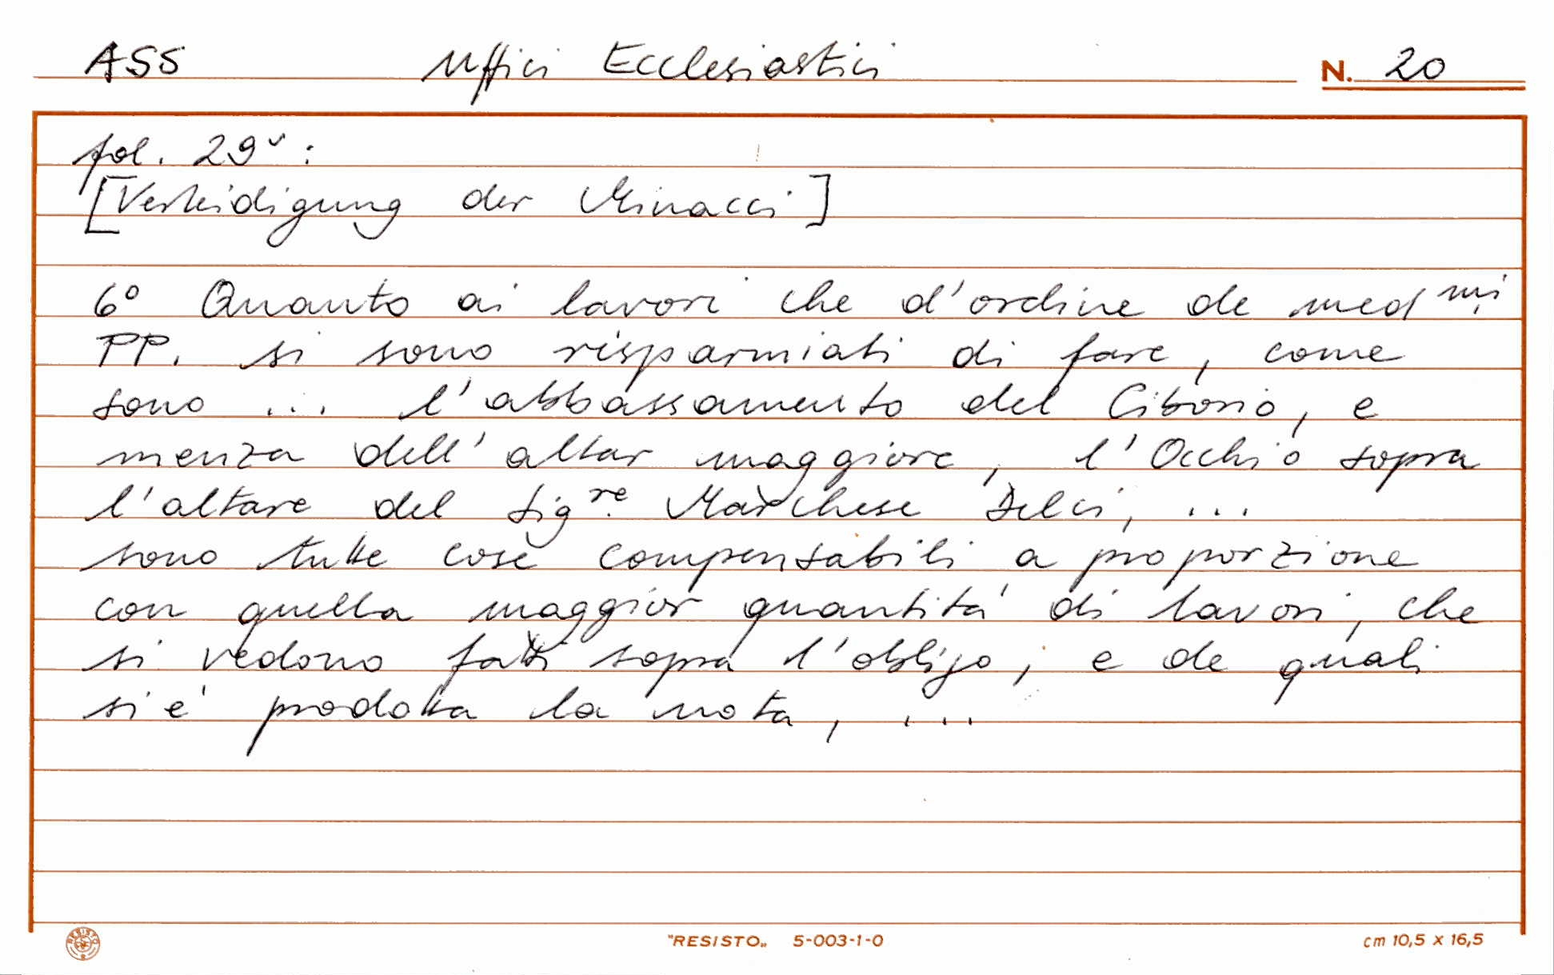 ASS Uffici Ecclesiastici N. 20
fol. 29v :
[Verteidigung der Minacci]
6° Quanto ai lavori che d'ordine de med.mi
PP. si sono risparmiati di fare, come
sono ... l'abbassamento del Ciborio, e
menza dell'altar maggiore, l'Occhio sopra
l'altare del Sig.re Marchese Delci, ...
sono tutte cose compensabili a proporzione
con quella maggior quantità di lavori, che
si vedono fatti sopra l'obbligo, e de quali
si è prodotta la nota, ...
RESISTO "RESISTO„ 5-003-1-0 cm 10,5 x 16,5